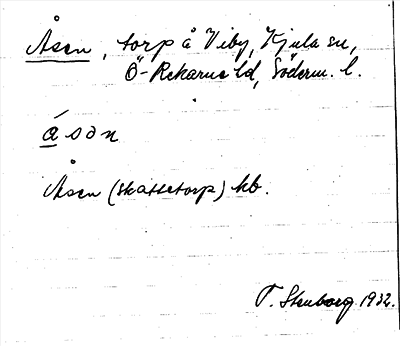 Åsen, torp å Viby, Kjula sn,
Ö-Rekarne hd, Söderm. l.
åsən
Åsen (skattetorp) kb.
T. Stenborg 1932.